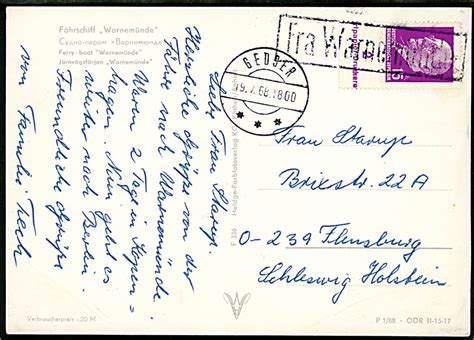 Fährschiff „Warnemünde"
Судно-паром »Варнемюнде«
Ferry-boat "Warnemünde"
Järnvägsfärjan "Warnemünde"
Liebe Frau Starup.
Herzliche Grüße von der
Fähre nach Warnemünde
Waren 2 Tage in Kopen=
hagen. Nun geht es
weiter nach Berlin.
Freundliche Grüße
von Familie
Verbraucherpreis -.20 M
GEDSER
9. 7. 68. 1800
Fra Warnemünde
15
Frau Starup
Briestr. 22A
O-239 Flensburg
Schleswig Holstein
P 1/68 - ODR II-15-17